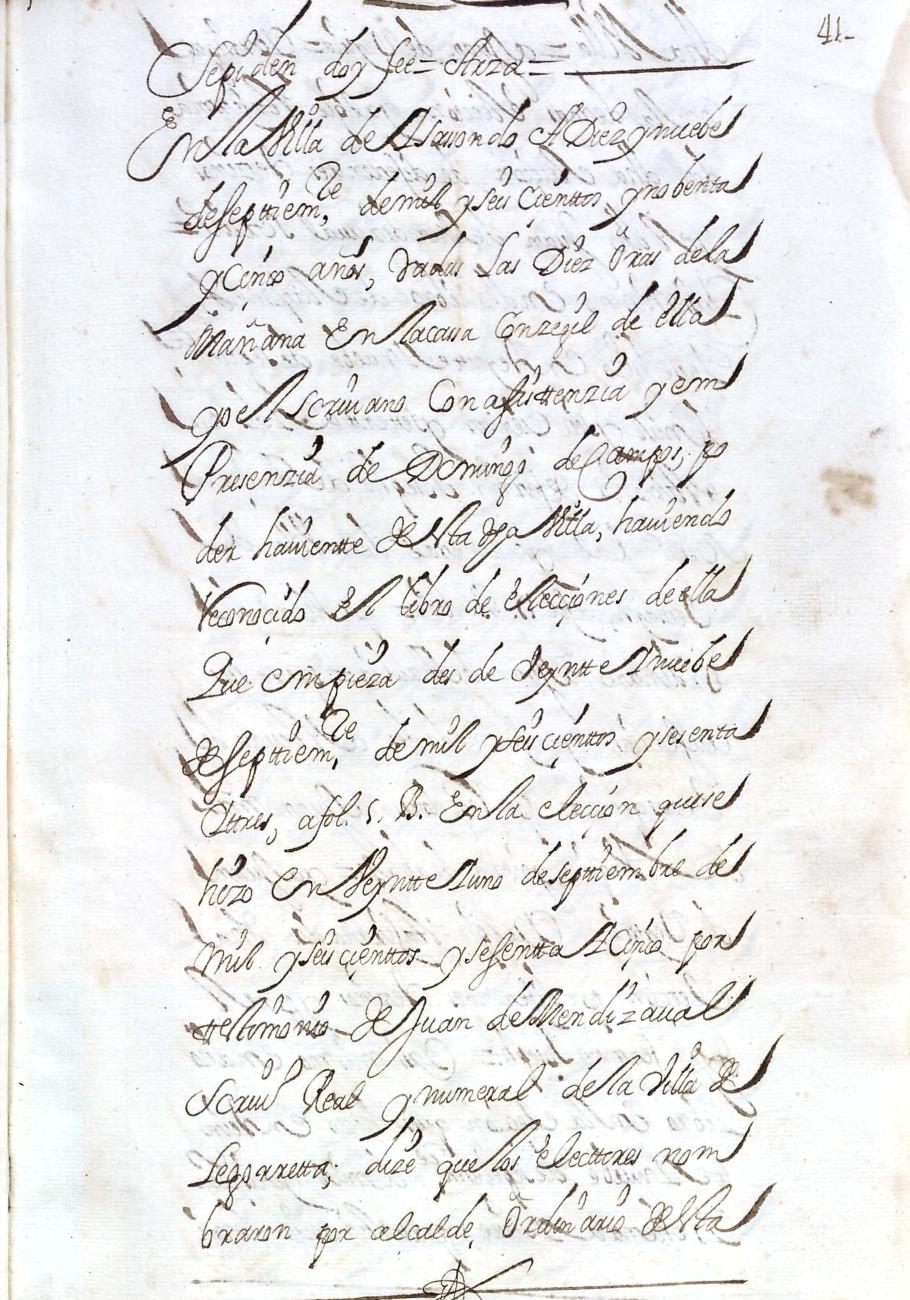 41-
Sepiden doy fee = Arza =
En la Villa de Asauondo A Diez y nuebe
de septtiem,re de mil y seis Cienttos y nobenta
y Cinco años, dadas las Diez oras de la
Mañana En la cassa Conzegil de ella
yo el Scriuano Con asisttenzia y em
Presenzia de Domingo de Campos, po
der hauientte de esta dha Villa, hauiendo
reconocido el libro de elecciones de ella
Que empieza des de Veyntte A nuebe
de septtiem,re de mil y seis cienttos y sesenta
Ittres, a fol. 5. B. En la elección que se
hizo en Veyntte A uno de septtiembre de
mil y seis cienttos y sesentta A Cinco por
testimonio de Juan de Mendizaual
Scriuo Real y numeral de la Villa de
Legorretta; dize que los electtores nom
braron por alcalde ordinario de esta